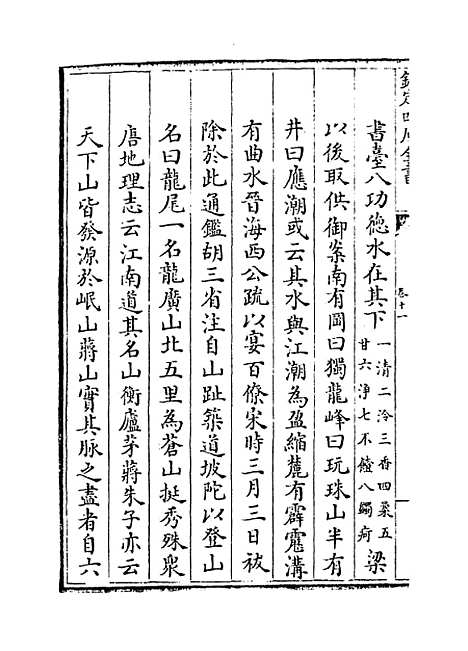 欽定四庫全書
卷十一
書臺八功德水在其下一清二泠三香四柔五甘六淨七不饐八蠲疴梁
以後取供御案南有岡曰獨龍峰曰玩珠山半有
井曰應潮或云其水與江潮為盈縮麓有霹靂溝
有曲水晉海西公疏以宴百僚宋時三月三日祓
除於此通鑑胡三省注自山趾築道坡陀以登山
名曰龍尾一名龍廣山北五里為蒼山挺秀殊衆
唐地理志云江南道其名山衡廬茅蔣朱子亦云
天下山皆發源於岷山蔣山實其脉之盡者自六